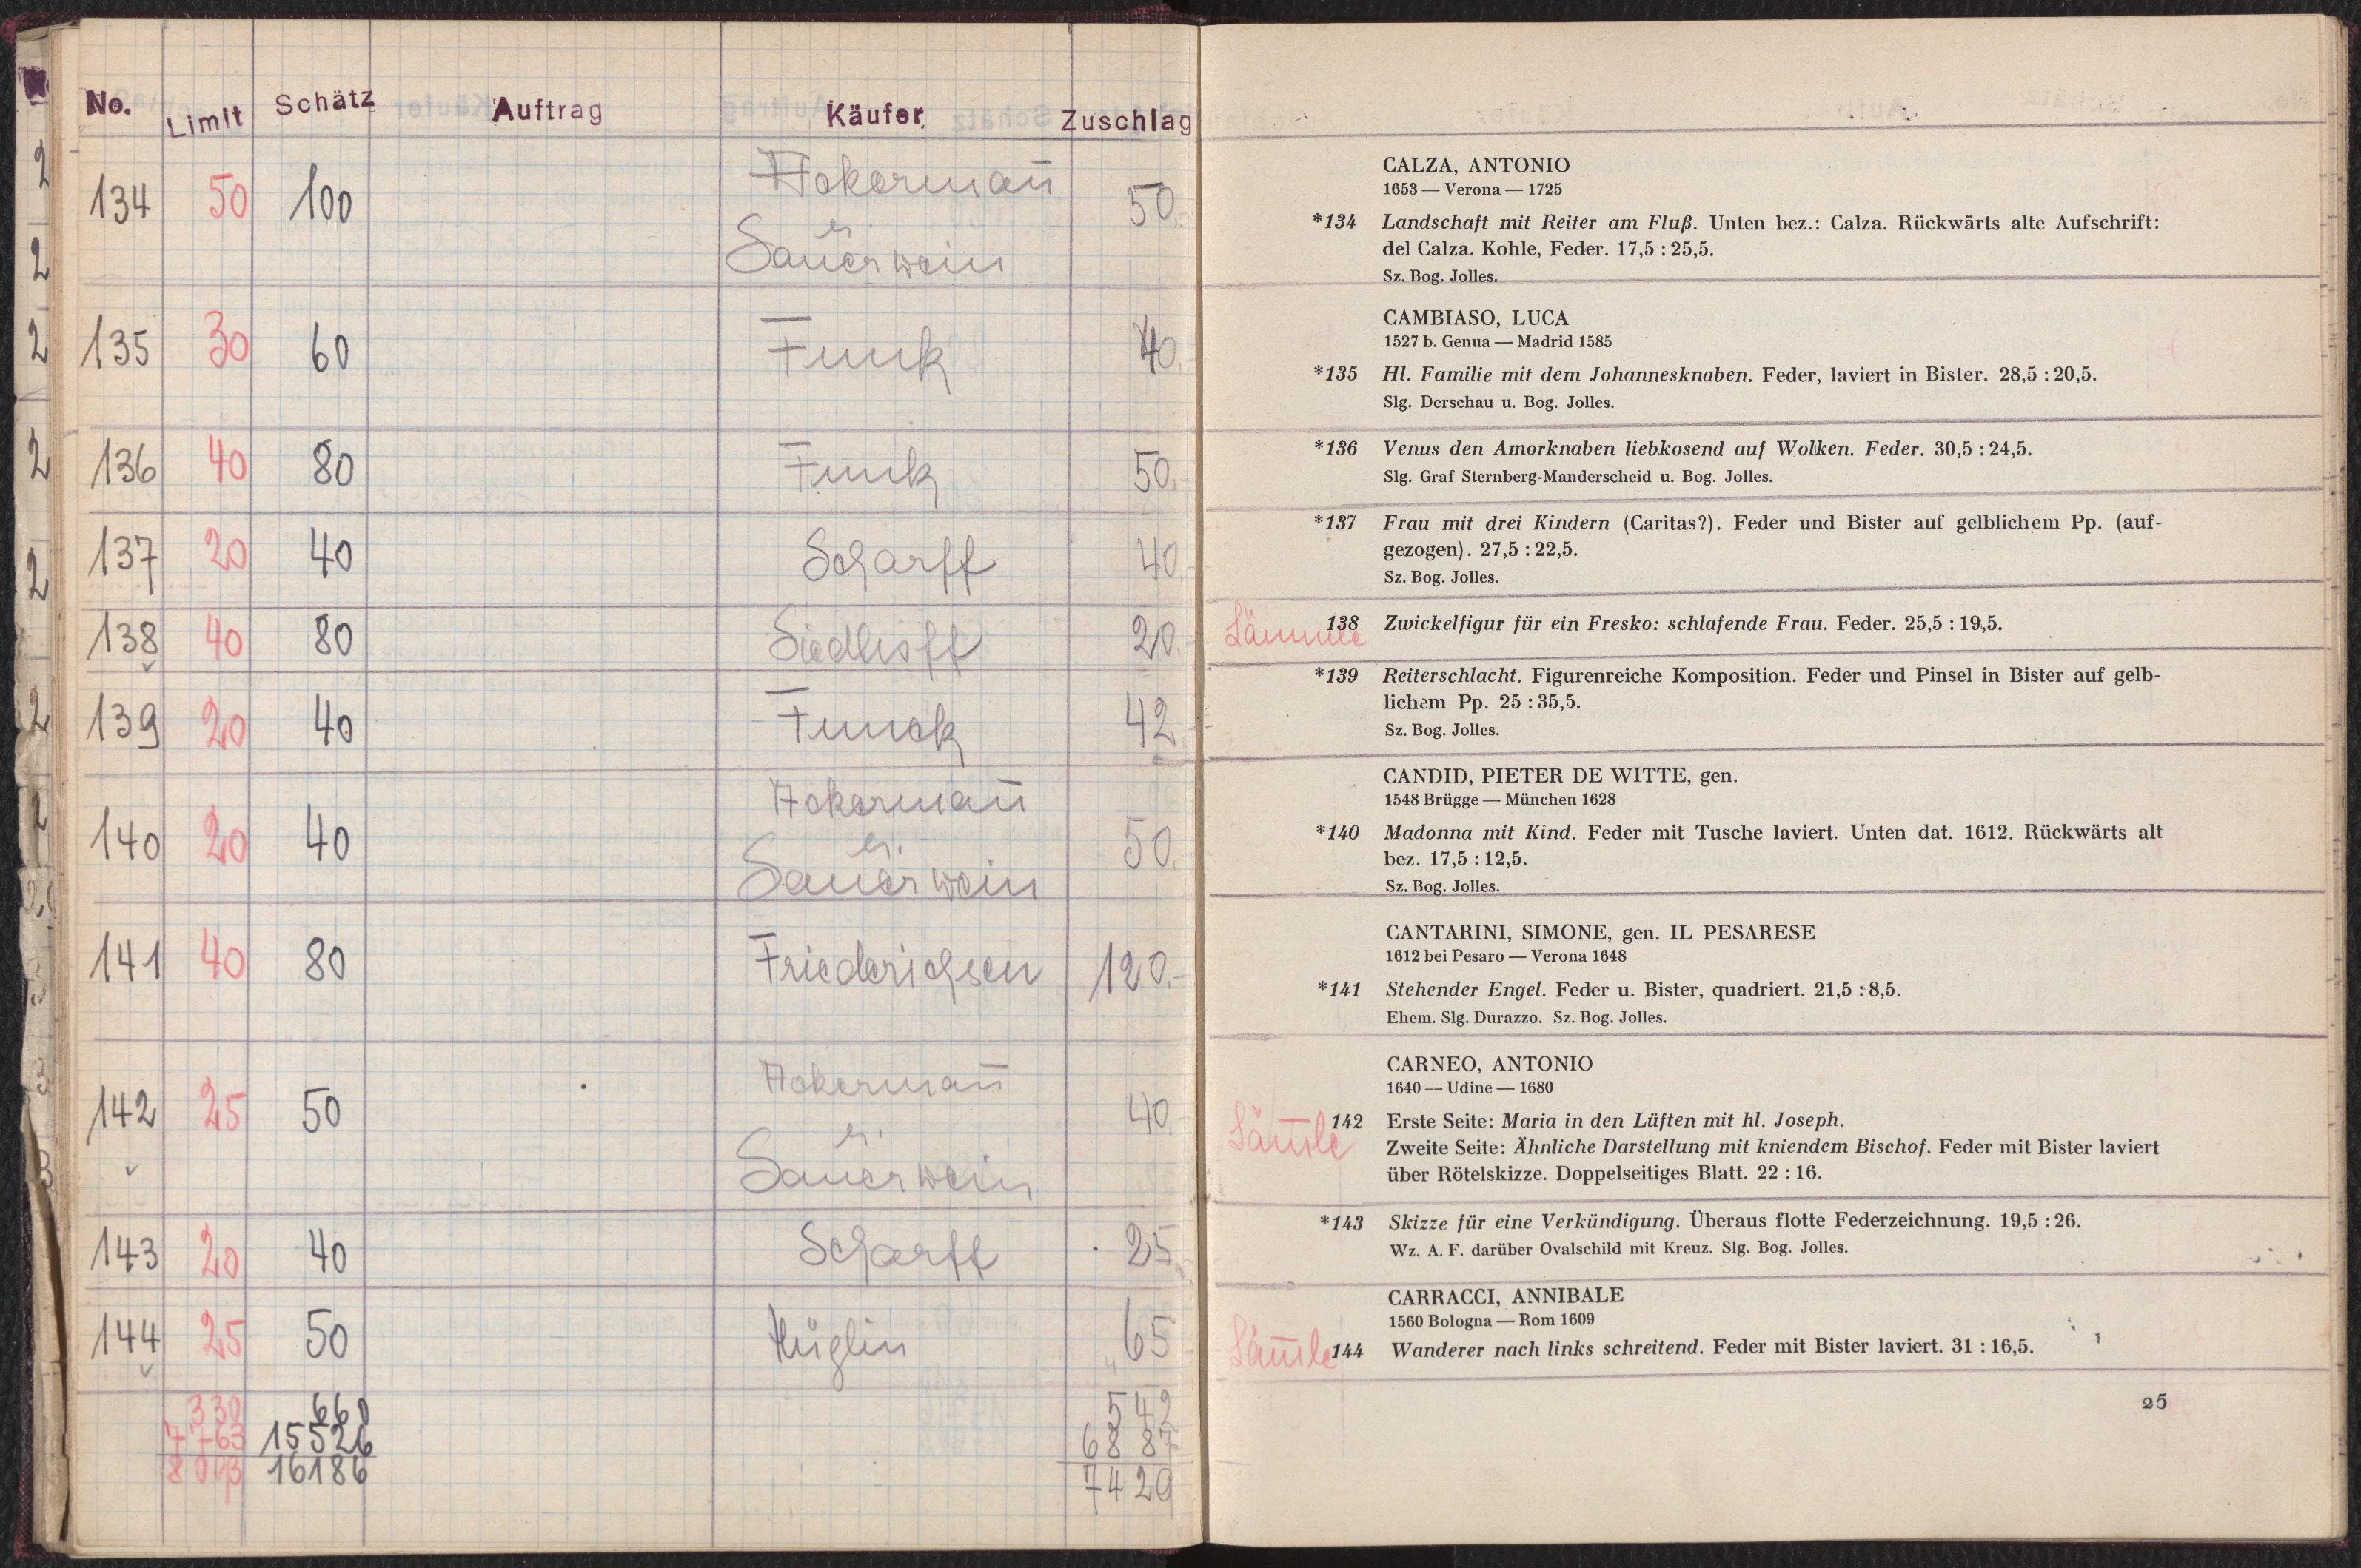 No. Limit Schätz Auftrag Käufer Zuschlag
134 50 100 Ackermañ 50.
Sauerwein
135 30 60 Funck 40.
136 40 80 Funck 50.
137 20 40 Scharff 40.
138 40 80 Siedhoff 20.
139 20 40 Funck 42
Ackermañ
140 20 40 50.
Sauerwein
141 40 80 Friederichsen 120.-
Ackermañ
142 25 50 40.
Sauerwein
143 20 40 Scharff 25
144 25 50 Hüglin 65
330 660 542
15526 6887
16186 7429
CALZA, ANTONIO
1653 — Verona — 1725
*134 Landschaft mit Reiter am Fluß. Unten bez.: Calza. Rückwärts alte Aufschrift:
del Calza. Kohle, Feder. 17,5 : 25,5.
Sz. Bog. Jolles.
CAMBIASO, LUCA
1527 b. Genua — Madrid 1585
*135 Hl. Familie mit dem Johannesknaben. Feder, laviert in Bister. 28,5 : 20,5.
Slg. Derschau u. Bog. Jolles.
*136 Venus den Amorknaben liebkosend auf Wolken. Feder. 30,5 : 24,5.
Slg. Graf Sternberg-Manderscheid u. Bog. Jolles.
*137 Frau mit drei Kindern (Caritas?). Feder und Bister auf gelblichem Pp. (auf-
gezogen). 27,5 : 22,5.
Sz. Bog. Jolles.
138 Zwickelfigur für ein Fresko: schlafende Frau. Feder. 25,5 : 19,5.
Lämmle
*139 Reiterschlacht. Figurenreiche Komposition. Feder und Pinsel in Bister auf gelb-
lichem Pp. 25 : 35,5.
Sz. Bog. Jolles.
CANDID, PIETER DE WITTE, gen.
1548 Brügge — München 1628
*140 Madonna mit Kind. Feder mit Tusche laviert. Unten dat. 1612. Rückwärts alt
bez. 17,5 : 12,5.
Sz. Bog. Jolles.
CANTARINI, SIMONE, gen. IL PESARESE
1612 bei Pesaro — Verona 1648
*141 Stehender Engel. Feder u. Bister, quadriert. 21,5 : 8,5.
Ehem. Slg. Durazzo. Sz. Bog. Jolles.
CARNEO, ANTONIO
1640 — Udine — 1680
142 Erste Seite: Maria in den Lüften mit hl. Joseph.
Läm̅le Zweite Seite: Ähnliche Darstellung mit kniendem Bischof. Feder mit Bister laviert
über Rötelskizze. Doppelseitiges Blatt. 22 : 16.
*143 Skizze für eine Verkündigung. Überaus flotte Federzeichnung. 19,5 : 26.
Wz. A. F. darüber Ovalschild mit Kreuz. Slg. Bog. Jolles.
CARRACCI, ANNIBALE
1560 Bologna — Rom 1609
Läm̅le 144 Wanderer nach links schreitend. Feder mit Bister laviert. 31 : 16,5.
25